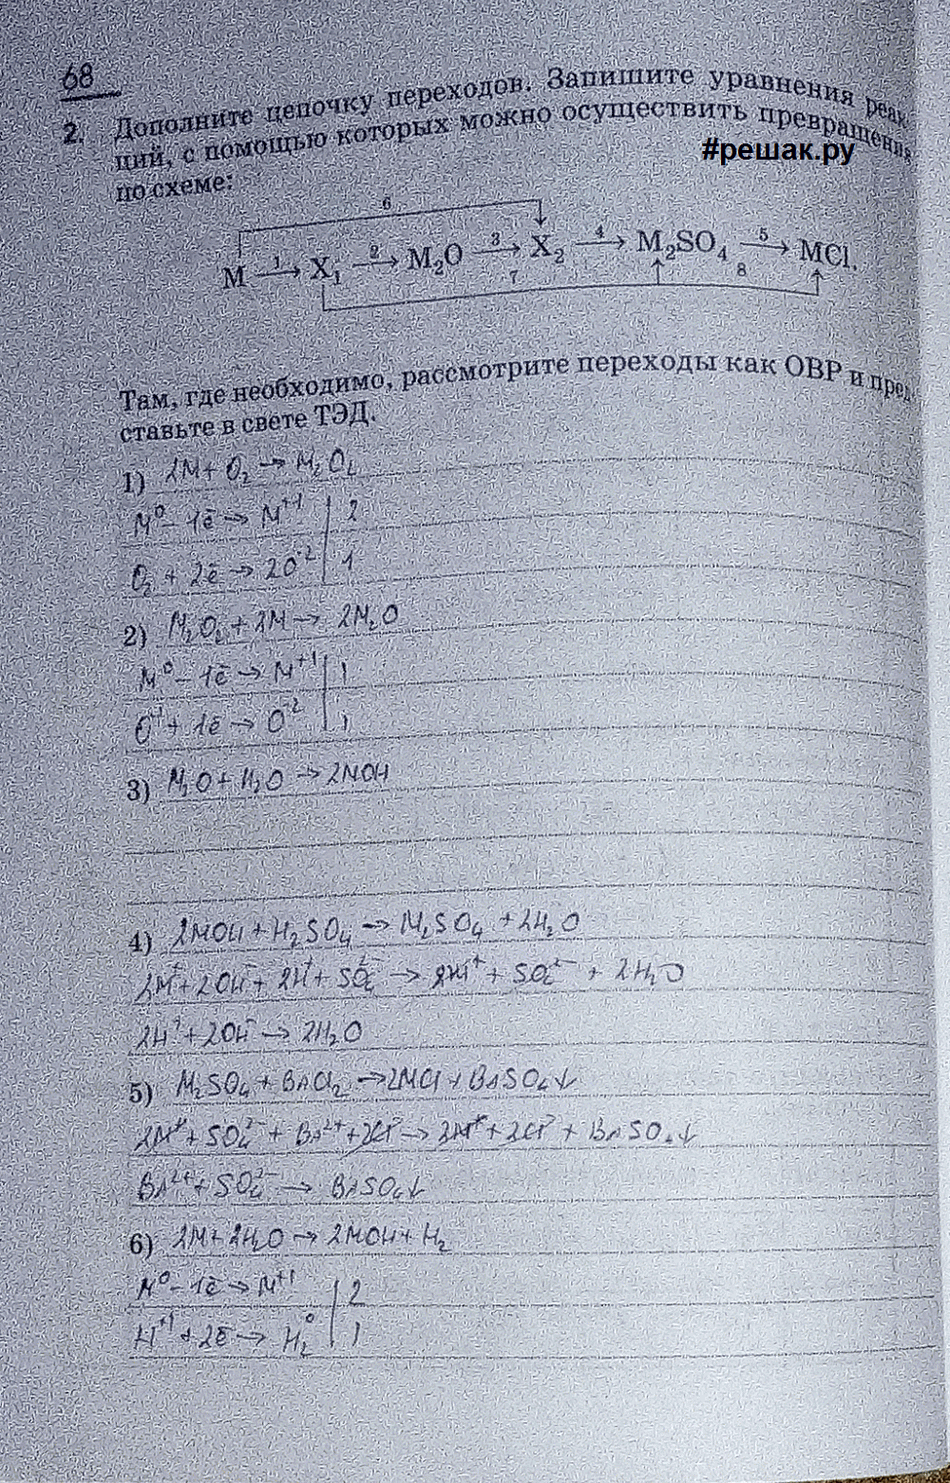 68
2. Дополните цепочку переходов. Запишите уравнения реак-
ций, с помощью которых можно осуществить превращения
#решак.ру
по схеме:
6
M 1→ X₁ 2→ M₂O 3→ X₂ 4→ M₂SO₄ 5→ MCl.
7 8
Там, где необходимо, рассмотрите переходы как ОВР и пред-
ставьте в свете ТЭД.
1) 2M + O₂ → M₂O₂
M⁰ - 1ē → M⁺¹ | 2
O₂ + 2ē → 2O⁻² | 1
2) M₂O₂ + 2M → 2M₂O
M⁰ - 1ē → M⁺¹ | 1
O⁻¹ + 1ē → O⁻² | 1
3) M₂O + H₂O → 2MOH
4) 2MOH + H₂SO₄ → M₂SO₄ + 2H₂O
2M⁺ + 2OH⁻ + 2H⁺ + SO₄²⁻ → 2M⁺ + SO₄²⁻ + 2H₂O
2H⁺ + 2OH⁻ → 2H₂O
5) M₂SO₄ + BaCl₂ → 2MCl + BaSO₄↓
2M⁺ + SO₄²⁻ + Ba²⁺ + 2Cl⁻ → 2M⁺ + 2Cl⁻ + BaSO₄↓
Ba²⁺ + SO₄²⁻ → BaSO₄↓
6) 2M + 2H₂O → 2MOH + H₂
M⁰ - 1ē → M⁺¹ | 2
H⁺¹ + 2ē → H₂⁰ | 1